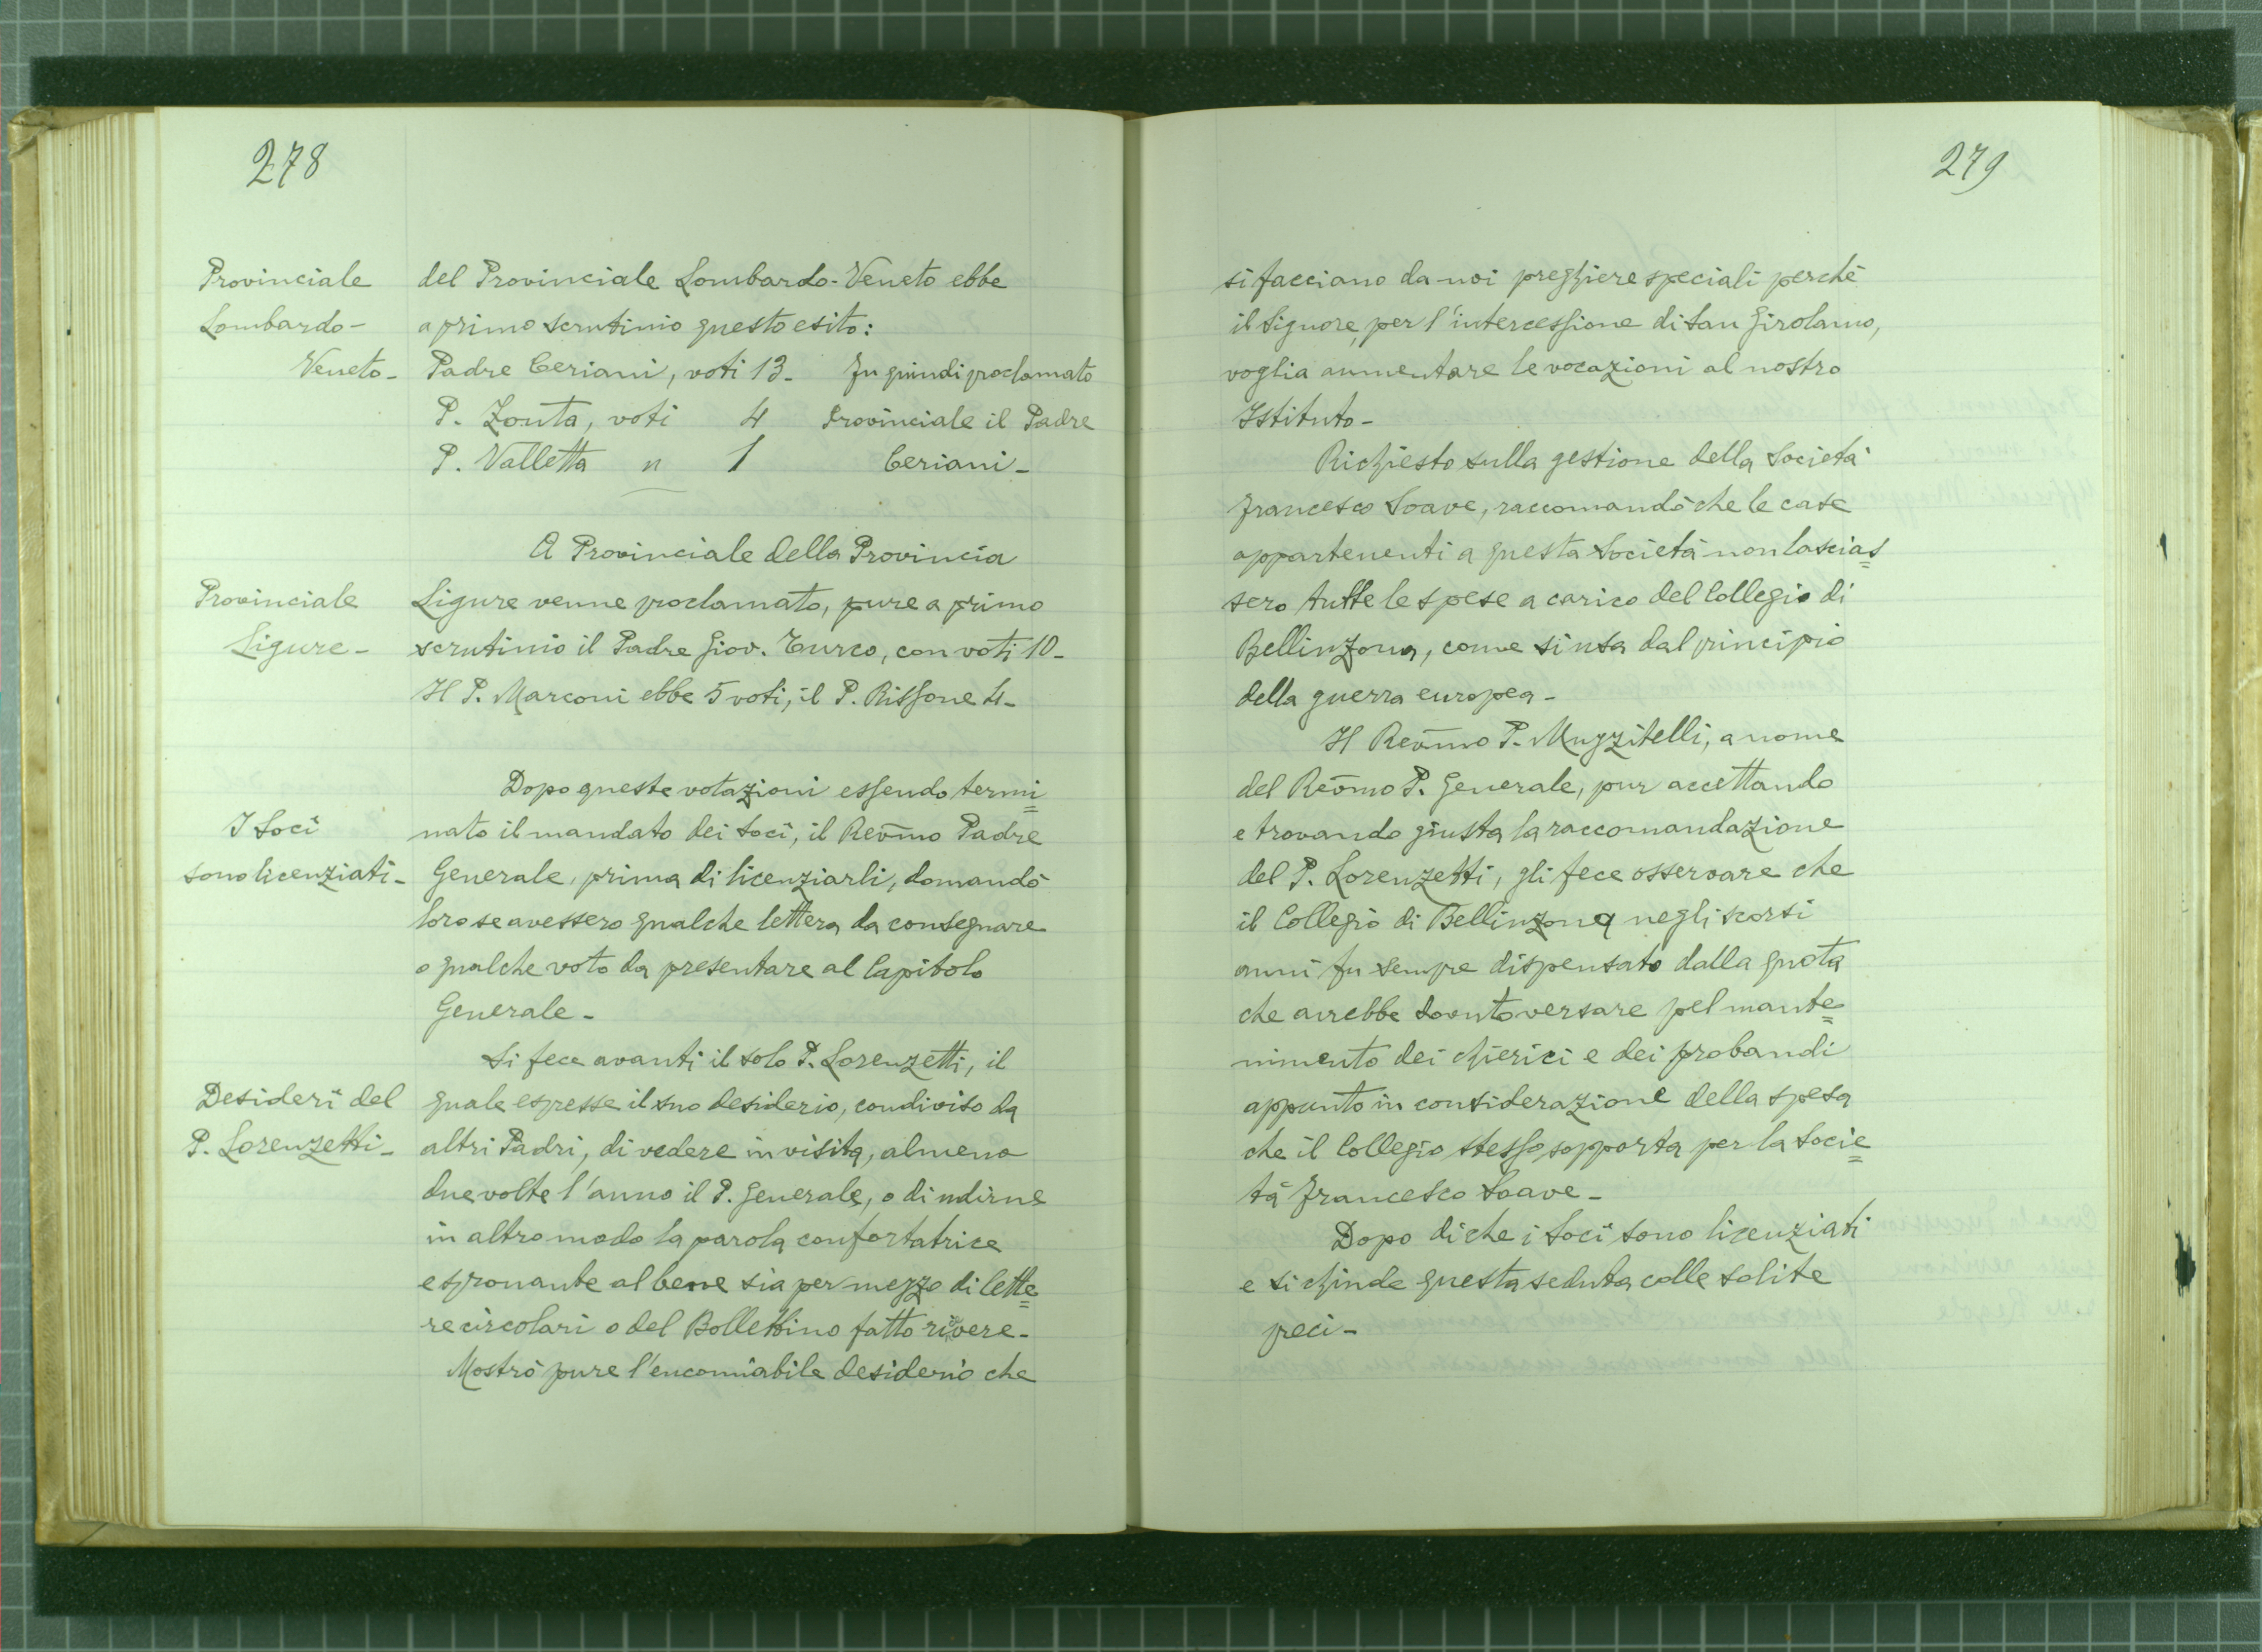 278
Provinciale
Lombardo-
Veneto-
del Provinciale Lombardo-Veneto ebbe
a primo scrutinio questo esito:
Padre Ceriani, voti 13- Fu quindi proclamato
P. Zonta, voti 4 Provinciale il Padre
P. Valletta " 1 Ceriani-
A Provinciale della Provincia
Provinciale
Ligure-
Ligure venne proclamato, pure a primo
scrutinio il Padre Giov. Turco, con voti 10-
Il P. Marconi ebbe 5 voti, il P. Rissone 4-
Dopo queste votazioni essendo termi=
I Soci
sono licenziati-
nato il mandato dei Soci, il Revmo Padre
Generale, prima di licenziarli, domandò
loro se avessero qualche lettera da consegnare
o qualche voto da presentare al Capitolo
Generale-
Si fece avanti il solo P. Lorenzetti, il
Desideri del
P. Lorenzetti-
quale espresse il suo desiderio, condiviso da
altri Padri, di vedere in visita, almeno
due volte l'anno il P. Generale, o di udirne
in altro modo la parola confortatrice
e spronante al bene sia per mezzo di lette=
re circolari o del Bollettino fatto rivere-
Mostrò pure l'encomiabile desiderio che
279
si facciano da noi preghiere speciali perchè
il Signore, per l'intercessione di San Girolamo,
voglia aumentare le vocazioni al nostro
Istituto-
Richiesto sulla gestione della Società
Francesco Soave, raccomandò che le case
appartenenti a questa Società non lascias=
sero tutte le spese a carico del Collegio di
Bellinzona, come si usa dal principio
della guerra europea-
Il Revmo P. Muzzitelli, a nome
del Revmo P. Generale, pur accettando
e trovando giusta la raccomandazione
del P. Lorenzetti, gli fece osservare che
il Collegio di Bellinzona negli scorsi
anni fu sempre dispensato dalla quota
che avrebbe dovuto versare pel mante=
nimento dei chierici e dei probandi
appunto in considerazione della spesa
che il Collegio stesso sopporta per la Socie=
tà Francesco Soave-
Dopo di che i Soci sono licenziati
e si chiude questa seduta colle solite
preci-